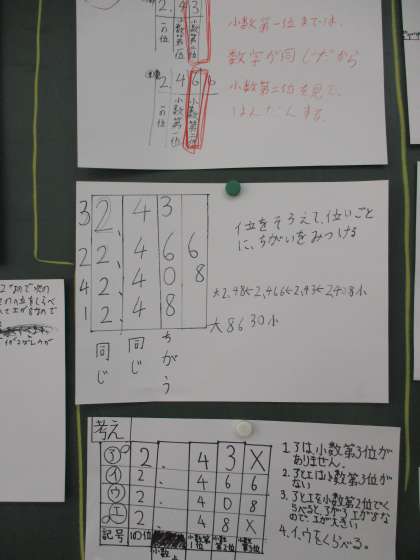 2.43
一の位
小数第一位
小数第二位
2.466
一の位
小数第一位
小数第二位
小数第一位までは、
数字が同じだから
小数第二位を見て、
はんだんする。
3 2.43
2 2.466
4 2.408
1 2.48
同じ
同じ
ちがう
位をそろえて、位いごと
に、ちがいをみつける
大2,48<2,466<2,43<2,408小
大8630小
考え
ア 2.43X
イ 2.466
ウ 2.408
エ 2.48X
記号 1の位 小数第1位 小数第2位 小数第3位
1.アは小数第3位が
ありません。
2.アとエは小数第3位が
ない
3.アとエを小数第2位でく
らべるとアが3、エが8な
ので、エが大きい
4.イ、ウをくらべる。